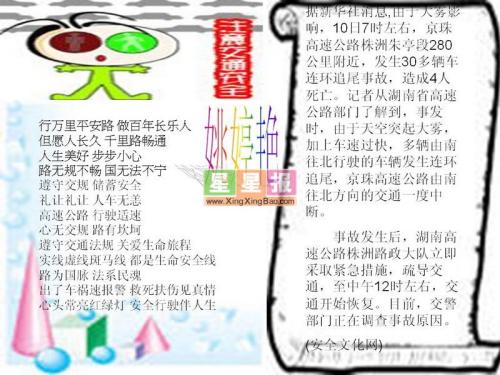 注意交通安全
行万里平安路 做百年长乐人
但愿人长久 千里路畅通
人生美好 步步小心
路无规不畅 国无法不宁
遵守交规 储蓄安全
礼让礼让 人车无恙
高速公路 行驶适速
心无交规 路有坎坷
遵守交通法规 关爱生命旅程
实线虚线斑马线 都是生命安全线
路为国脉 法系民魂
出了车祸速报警 救死扶伤见真情
心头常亮红绿灯 安全行驶伴人生
星星报
www.XingXingBao.com
据新华社消息,由于大雾影
响，10日7时左右，京珠
高速公路株洲朱亭段280
公里附近，发生30多辆车
连环追尾事故，造成4人
死亡。记者从湖南省高速
公路部门了解到，事发
时，由于天空突起大雾，
加上车速过快，多辆由南
往北行驶的车辆发生连环
追尾，京珠高速公路由南
往北方向的交通一度中
断。
事故发生后，湖南高
速公路株洲路政大队立即
采取紧急措施，疏导交
通，至中午12时左右，交
通开始恢复。目前，交警
部门正在调查事故原因。
(安全文化网)